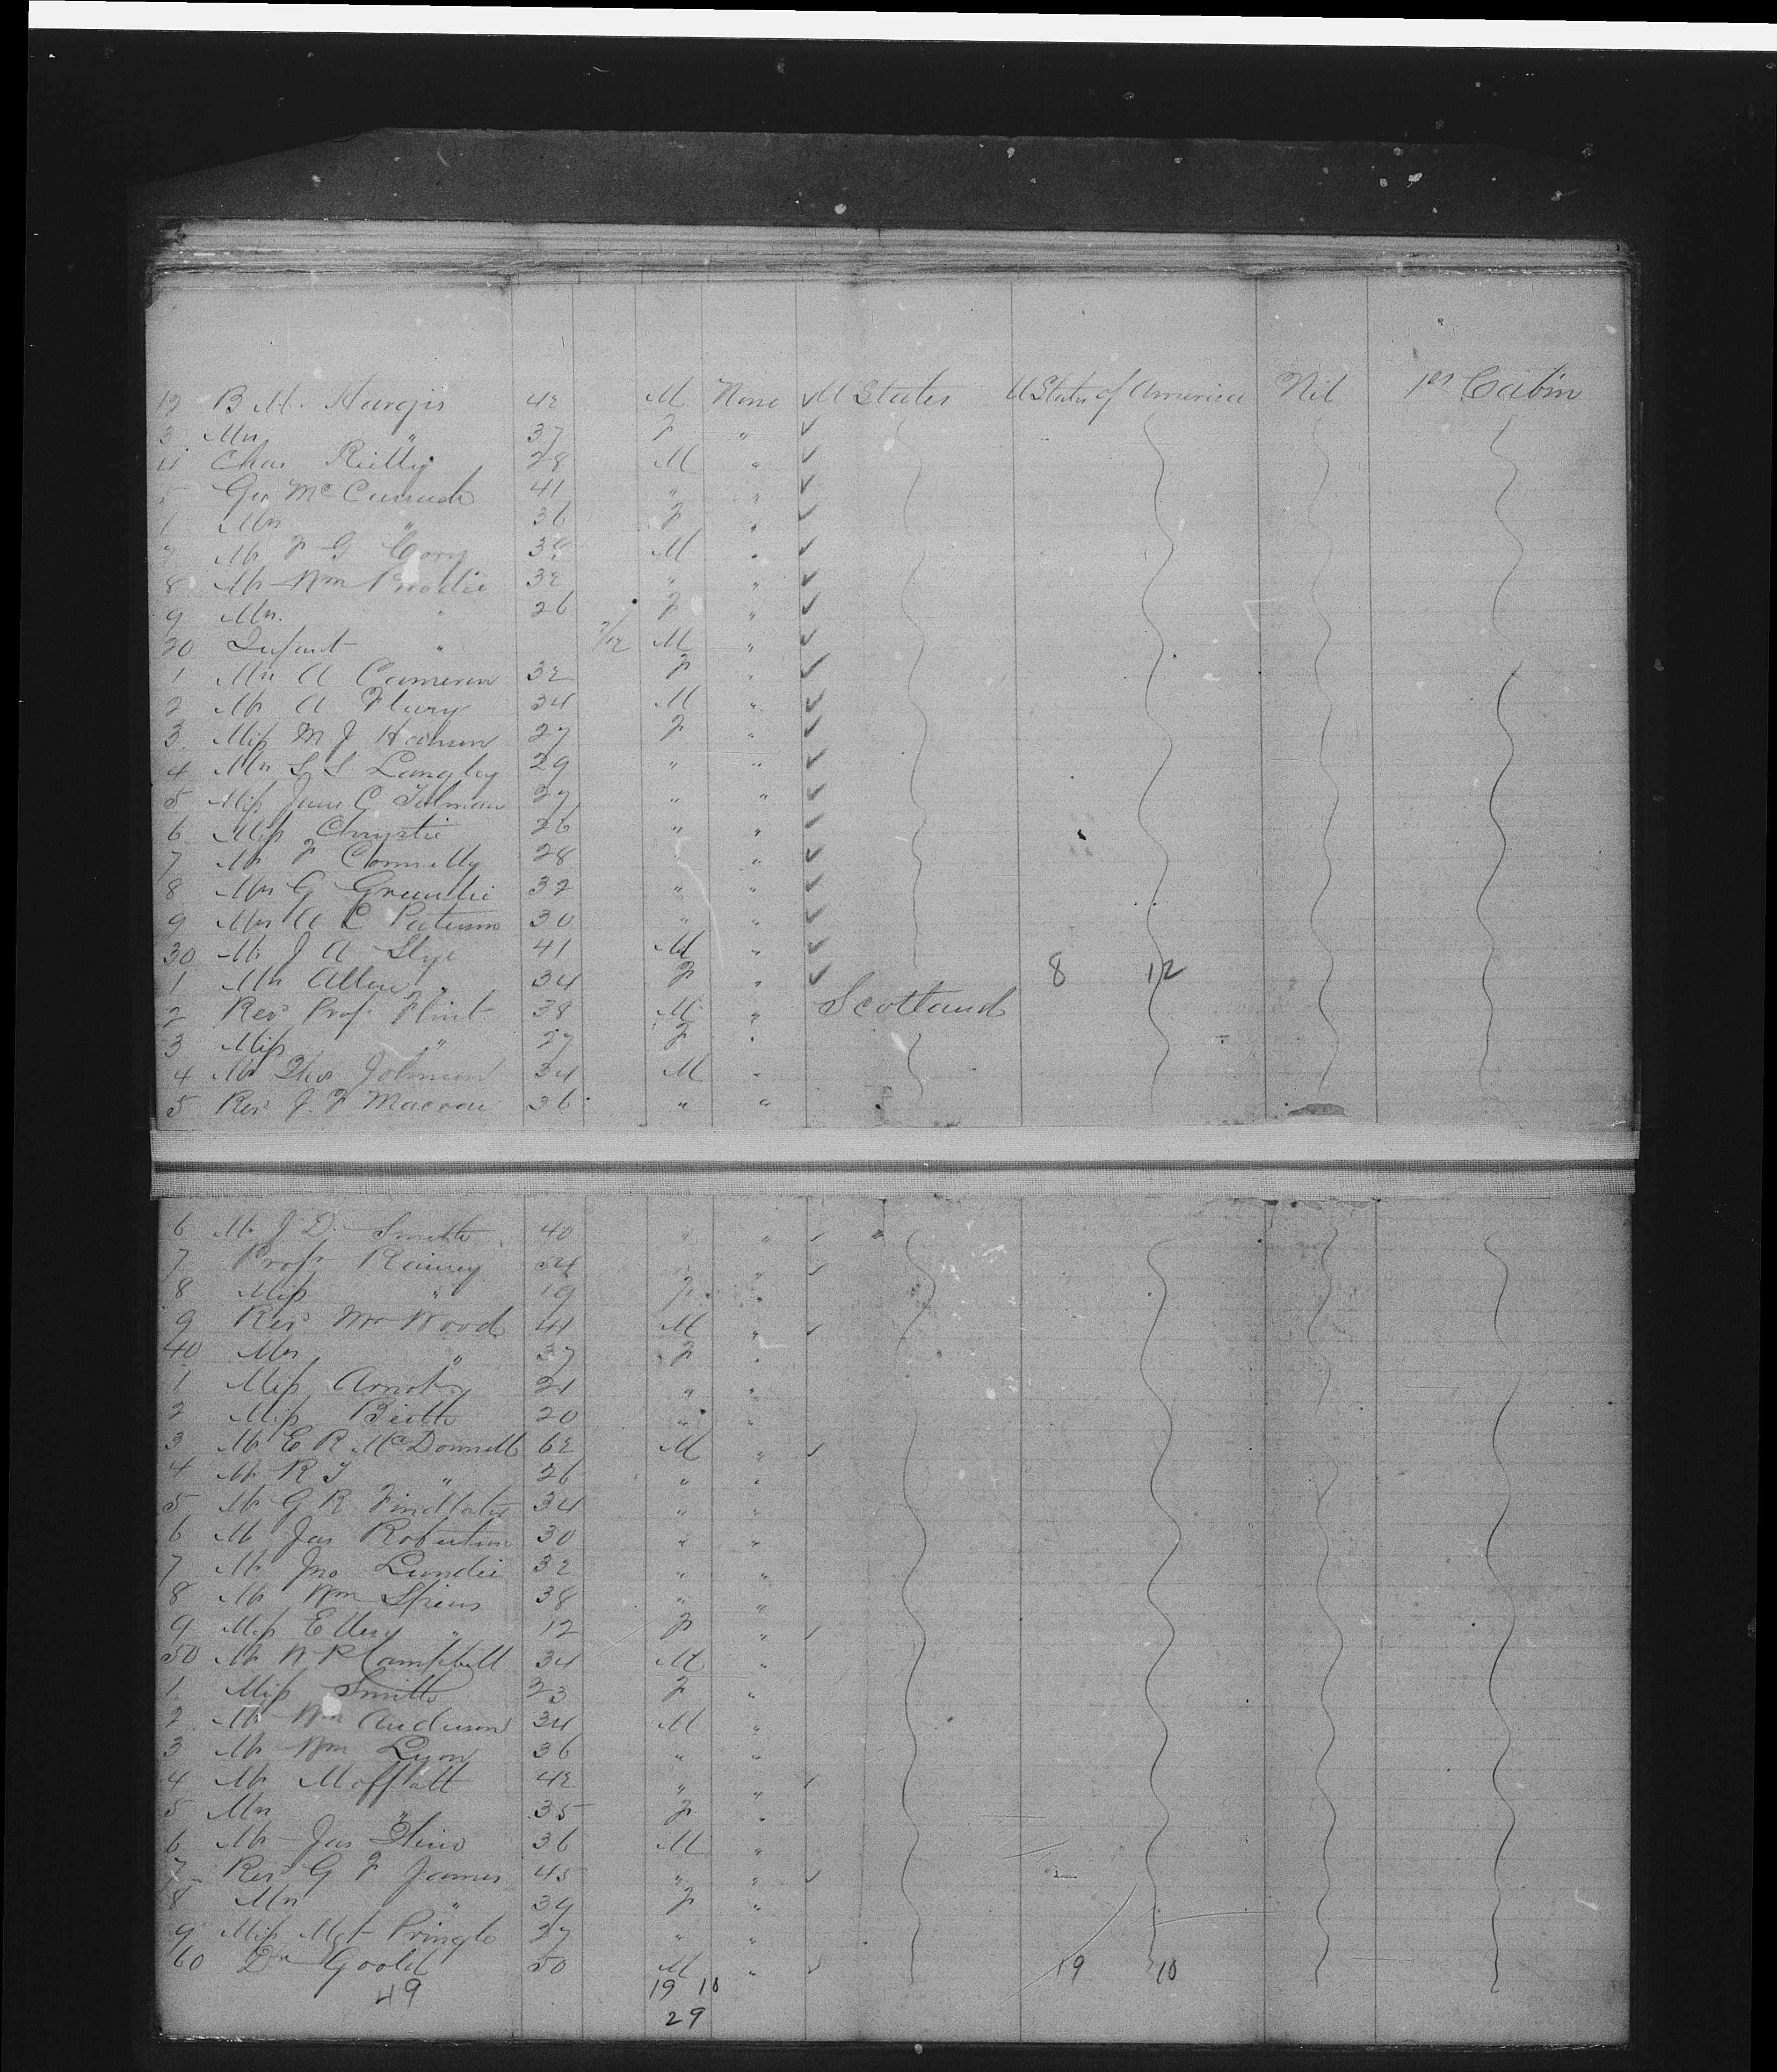 12 B M. Hargis 42 M None ✓ U States U States of America Nil 1st Cabin
3 Mrs " 37 F " ✓
4 Chas Reilly 28 M " ✓
5 Geo Mc 41 " " ✓
Mrs " 36 F " ✓
Mr F G Cory 38 M " ✓
8 Mr Wm Brodie 32 " " ✓
9 Mrs. " 26 F " ✓
20 Infant " /12 M " ✓
1 Mrs A Cameron 32 F " ✓
2 Mr A Flury 34 M " ✓
3 Miss M J Hanson 27 F " ✓
4 Mrs S S Langley 29 " " ✓
5 Miss Jane C Tilman 27 " " ✓
6 Miss Chrystie 26 " " ✓
7 Mr F Connelly 28 " ✓
8 Mrs G 32 " " ✓
9 Mrs A L Putnam 30 " " ✓
30 Mr J A Slye 41 M " ✓
1 Mrs Allen 34 F " ✓ 8 12
2 Revd Prof. Flint 38 M " Scotland
3 Miss " 27 F "
4 Mr Thos Johnson 34 M "
5 Revd J. F Macrae 36 " "
6 Mr J D Smith 40 " " ✓
7 Profr Ramsey 54 " ✓
8 Miss " 19 F "
9 Revd Mr Wood 41 M " ✓
40 Mrs " 37 F "
1 Miss Arnot 21 " "
2 Miss Beith 20 " "
3 Mr E R McDonnell 62 M " ✓
4 Mr R J " 26 " "
5 Mr G R Findlater 34 " "
6 Mr Jas Robertson 30 " "
7 Mr Jno Lundie 32 " "
8 Mr Wm Spiers 38 " "
9 Miss Ellen " 12 F " ✓
50 Mr W R Campbell 34 M "
1 Miss Smith 23 F "
2 Mr Wm Anderson 34 M "
3 Mr Wm Lyon 36 " "
4 Mr Moffatt 42 " " ✓
5 Mrs " 35 F "
6 Mr Jas 36 M "
7 Revd G F James 45 " " ✓
8 Mrs " 39 F "
9 Miss Mgt Pringle 27 " "
60 Dr Goold 50 M " ✓ 19 10
49 19 10
29